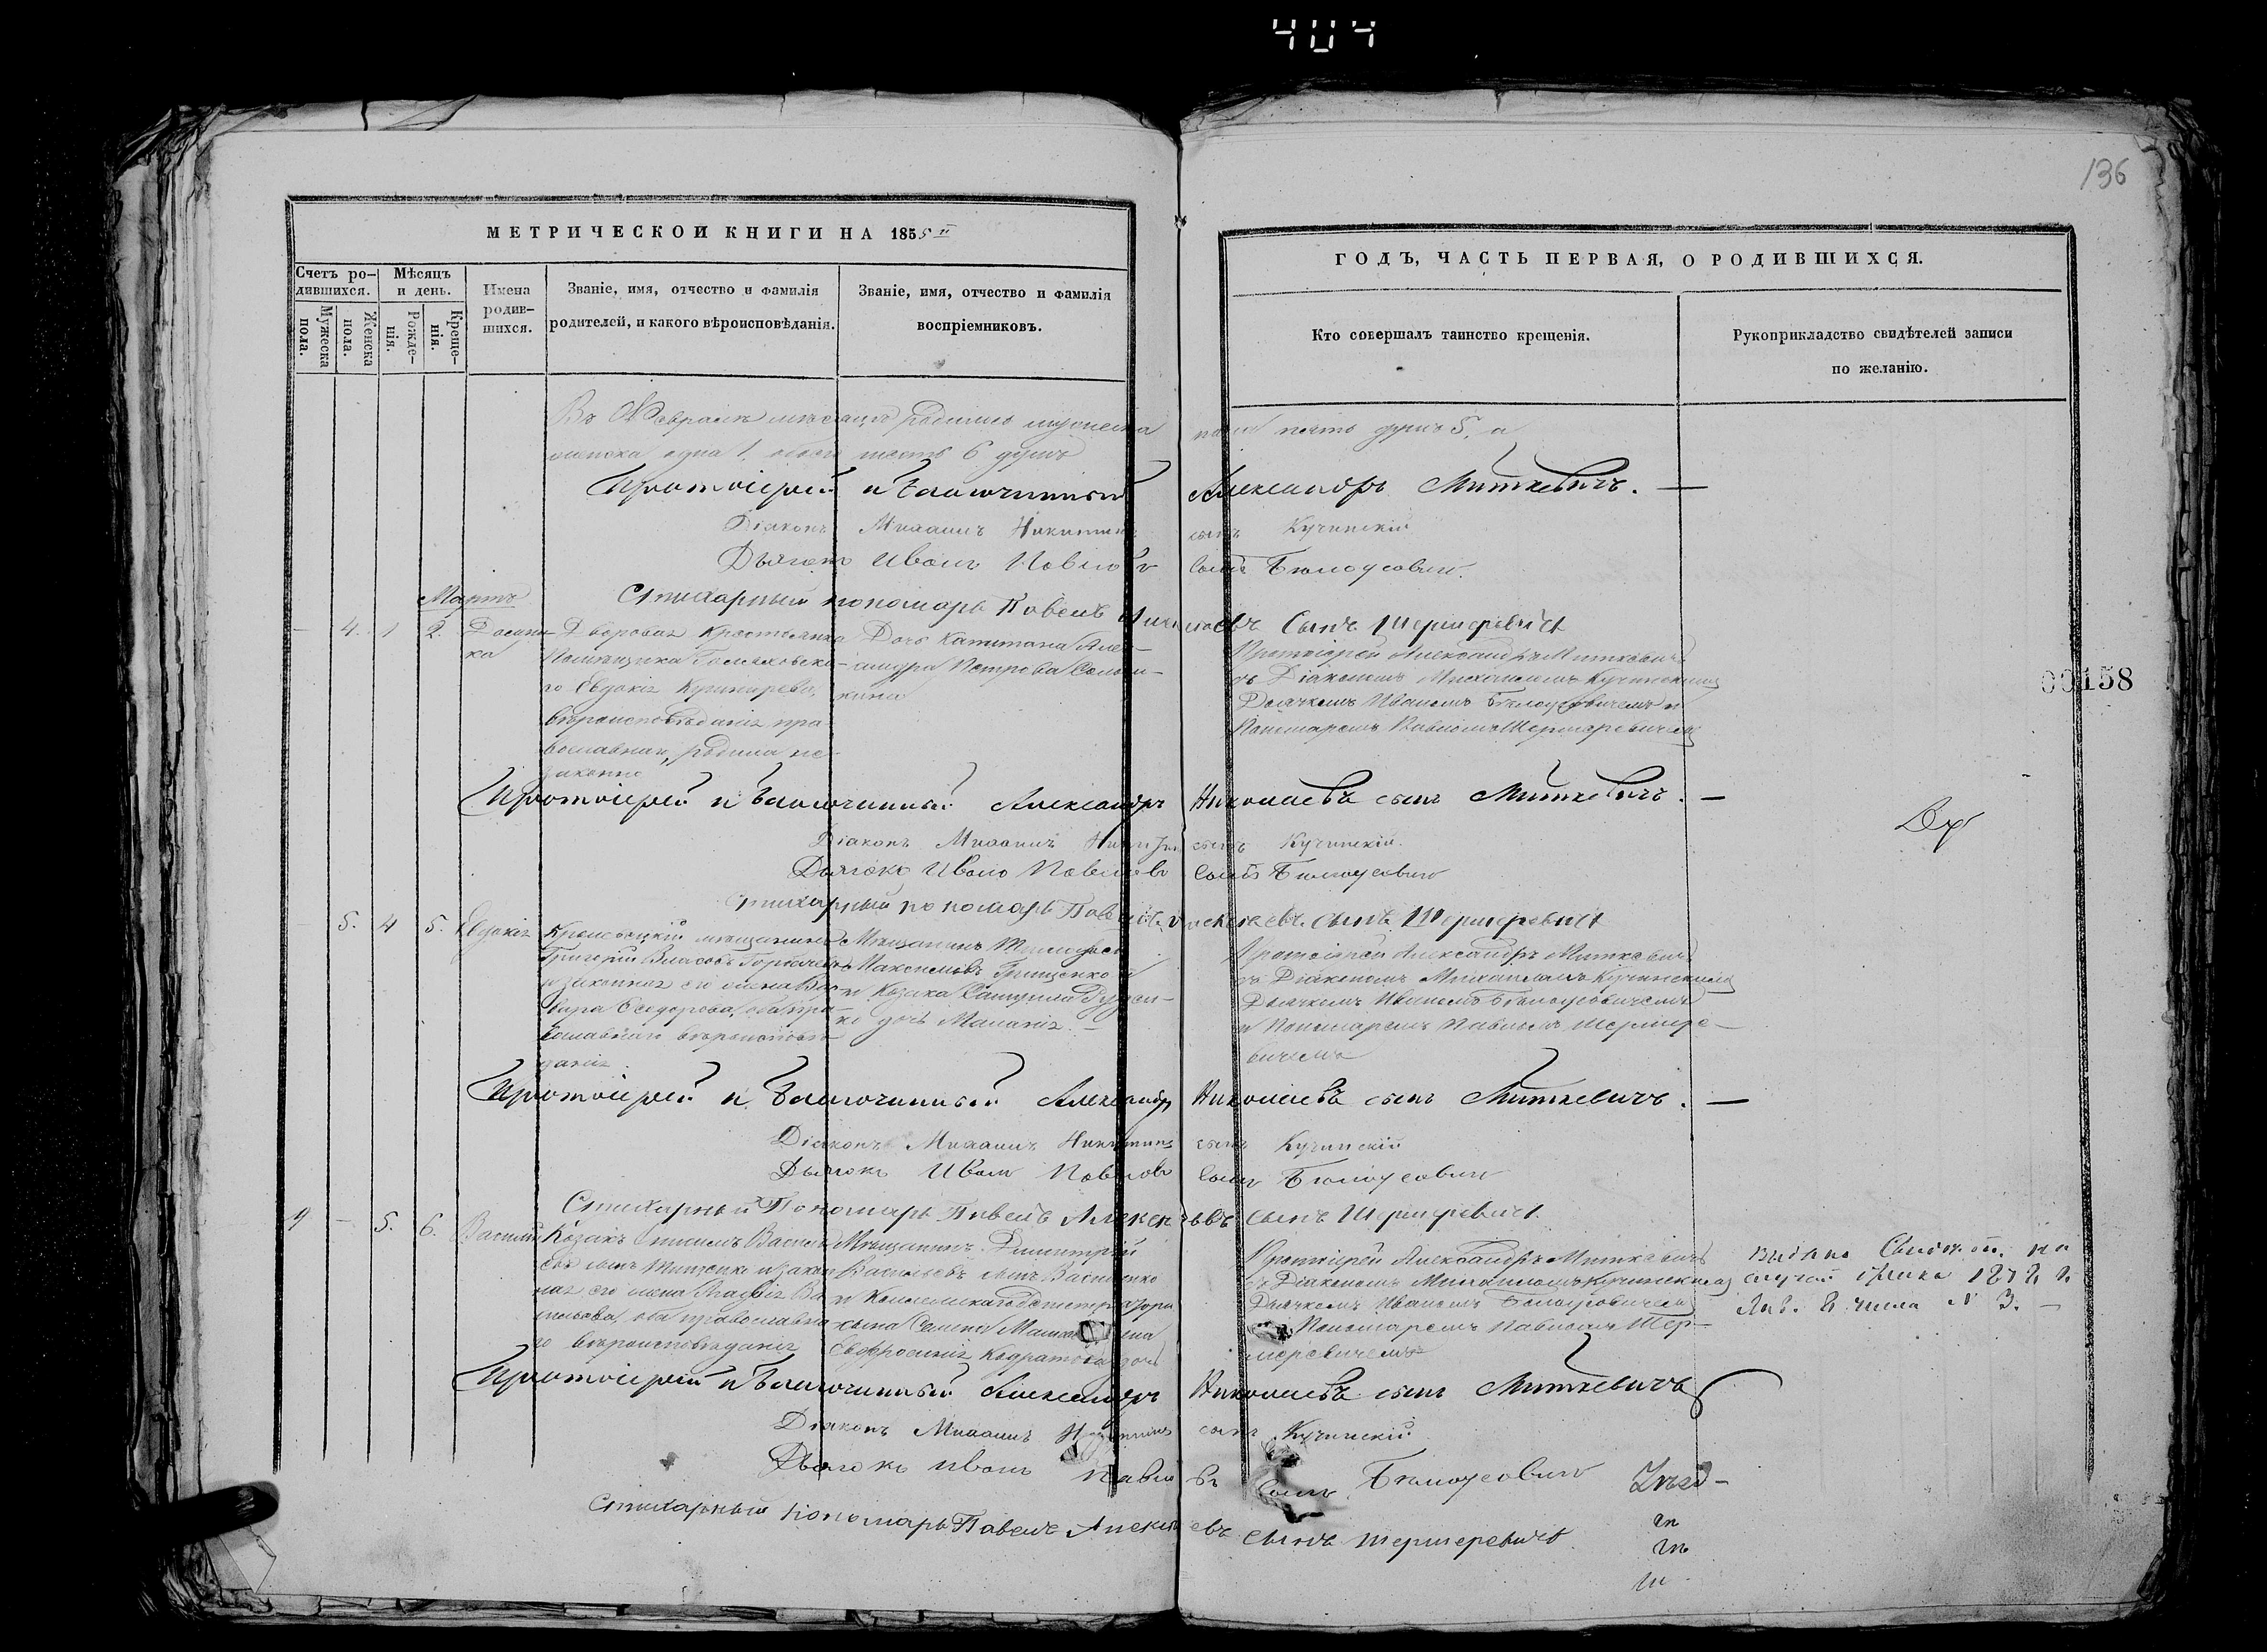 404
136
МЕТРИЧЕСКОЙ КНИГИ НА 1855
ГОДЪ, ЧАСТЬ ПЕРВАЯ, О РОДИВШИХСЯ.
Счетъ родившихся.
Мужеска пола.
Женска пола.
Мѣсяцъ и день.
Рожденія.
Крещенія.
Имена родившихся.
Званіе, имя, отчество и фамилія
родителей, и какого вѣроисповѣданія.
Званіе, имя, отчество и фамилія
воспріемниковъ.
Кто совершалъ таинство крещенія.
Рукоприкладство свидѣтелей записи
по желанію.
Въ Февралѣ мѣсяцѣ родилось мужеска пола пять душъ 5, а
женска одна 1, обоего шесть 6 душъ
Протоіерей и Благочинный Александръ Миткевичъ.
Діаконъ Михаилъ Никитинъ сынъ Кучинскій
Дьячокъ Иванъ Павловъ сынъ Белоусовичъ.
Стихарный пономарь Павелъ Алексѣевъ сынъ Шермеревичъ
Мартъ
4. 1 2.
Дворовая крестьянка
Помѣщика
го Евдокія
вѣроисповѣданія пра
вославнаго, родила не
законно
Дочь Капитана Алек-
сандра Петрова
Протоіерей Александръ Миткевичъ
съ Діакономъ Михаиломъ Кучинскимъ
Дьячкомъ Иваномъ Белоусовичемъ и
Пономаремъ Павломъ Шермеревичемъ
00158
Протоіерей и Благочинный Александръ Николаевъ сынъ Миткевичъ.
Діаконъ Михаилъ Никитинъ сынъ Кучинскій.
Дьячокъ Иванъ Павловъ сынъ Белоусовичъ
Стихарный пономарь Павелъ Алексѣевъ сынъ Шермеревичъ
5. 4 5. Евдокія
мѣщанинъ
Григорій Власовъ
и законная его жена Вар
вара Феодорова, оба пра-
вославнаго вѣроисповѣ
данія
Мѣщанинъ
Максимовъ Грищенко
и Козака
ко дочь Маланія
Протоіерей Александръ Миткевичъ
съ Діакономъ Михаиломъ Кучинскимъ
Дьячкомъ Иваномъ Белоусовичемъ
и Пономаремъ Павломъ Шермере-
вичемъ
Протоіерей и Благочинный Александръ Николаевъ сынъ Миткевичъ.
Діаконъ Михаилъ Никитинъ сынъ Кучинскій
Дьячокъ Иванъ Павловъ сынъ Белоусовичъ
Стихарный Пономарь Павелъ Алексѣевъ сынъ Шермеревичъ.
5. 6. Василій
Козакъ
его жена
оба православна
го вѣроисповѣданія
Мѣщанинъ Димитрій
Васильевъ сынъ Василенко
и
сына Семена жена
Евфросинія Кодратова дочь
Протоіерей Александръ Миткевичъ
съ Діакономъ Михаиломъ Кучинскимъ
Дьячкомъ Иваномъ Белоусовичемъ
и Пономаремъ Павломъ Шер-
меревичемъ
числа № 3.
Протоіерей и Благочинный Александръ Николаевъ сынъ Миткевичъ
Діаконъ Михаилъ Никитинъ сынъ Кучинскій
Дьячокъ Иванъ Павловъ сынъ Белоусовичъ
Стихарный пономарь Павелъ Алексѣевъ сынъ Шермеревичъ.